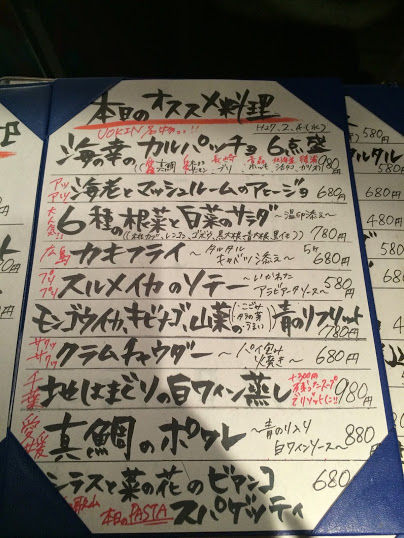 本日のオススメ料理
UOKIN名物!!!
H27.2.4(水)
海の幸のカルパッチョ6点盛 980円
アツアツ 海老とマッシュルームのアヒージョ 680円
大人気!! 6種の根菜と白菜のサラダ ~温卵添え~ 780円
広島 カキフライ ~タルタル キャベツ添え~ 5ヶ 680円
プリプリ スルメイカのソテー ~いかわた アラビアータソース~ 580円
モンゴウイカ、キビナゴ、山菜の 青のリフリット 780円
サクッサクッ クラムチャウダー ~パイ包み焼き~ 680円
千葉 地はまぐりの白ワイン蒸し 980円
+300円
リゾットに!!
愛媛 真鯛のポワレ ~青のり入り 白ワインソース~ 880円
シラスと菜の花のビアンコ 680円
歌山 本日のPASTA スパゲッティ
580円
タルタル
580円
680円
480円